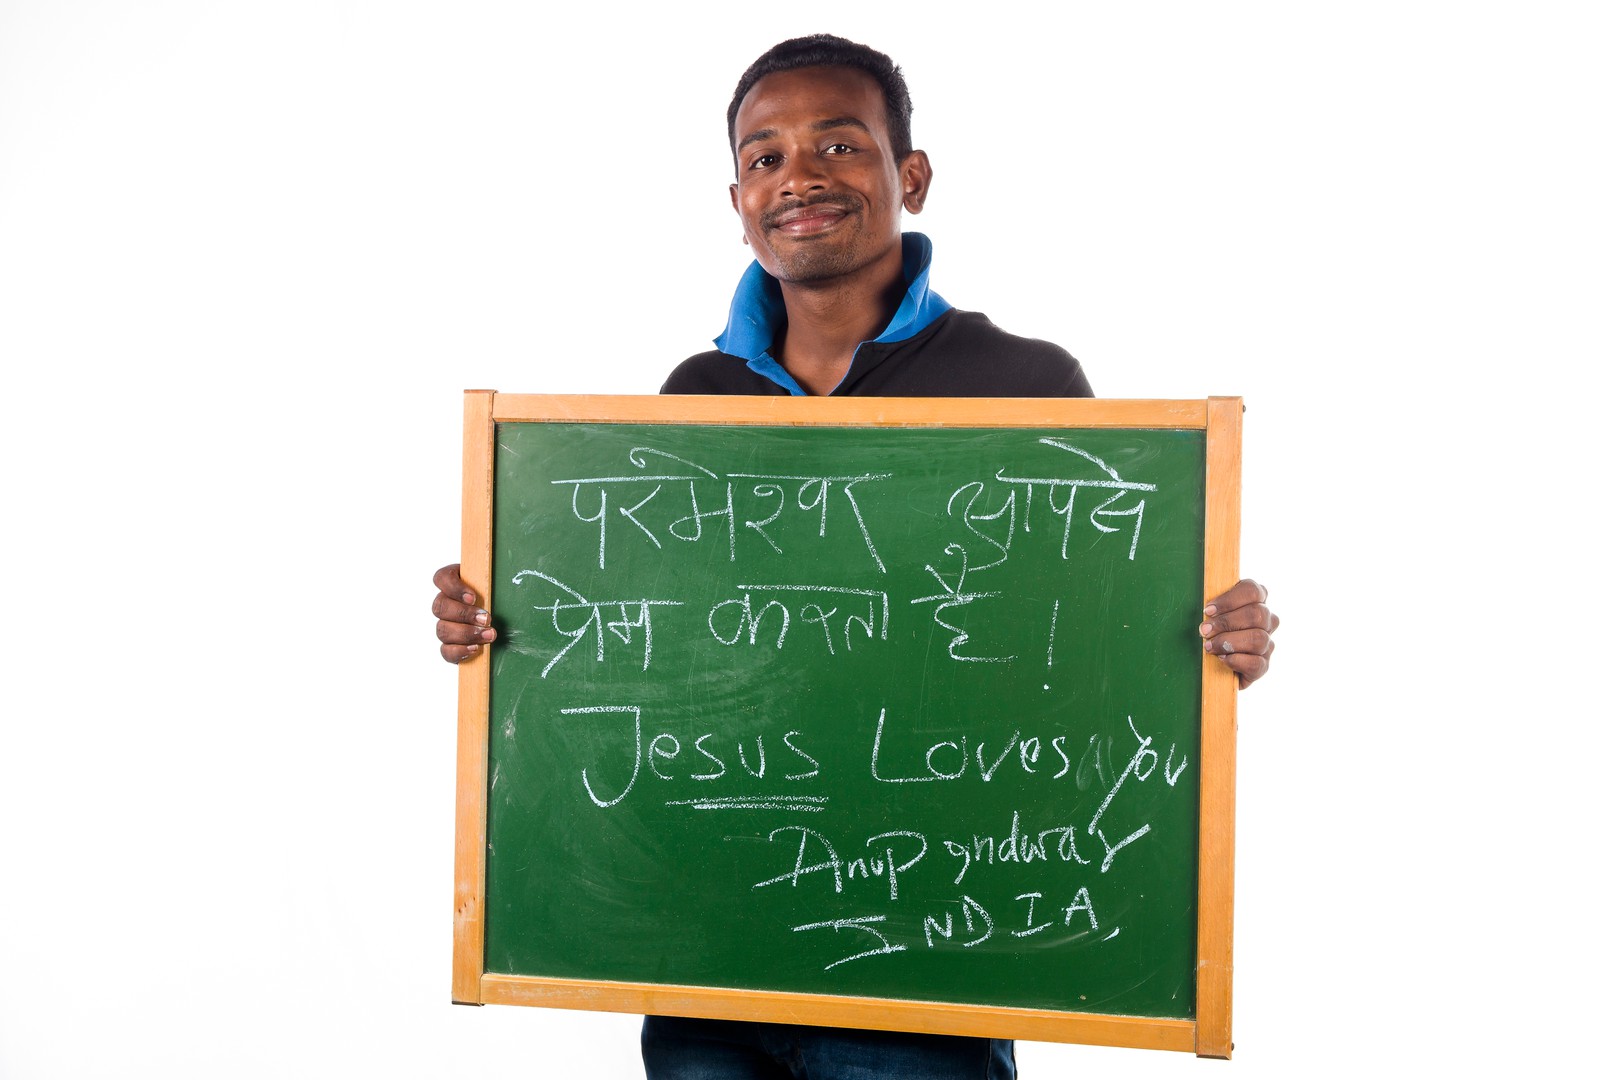 परमेश्वर आपसे
प्रेम करता है !
Jesus Loves you
Anup gndwar
INDIA